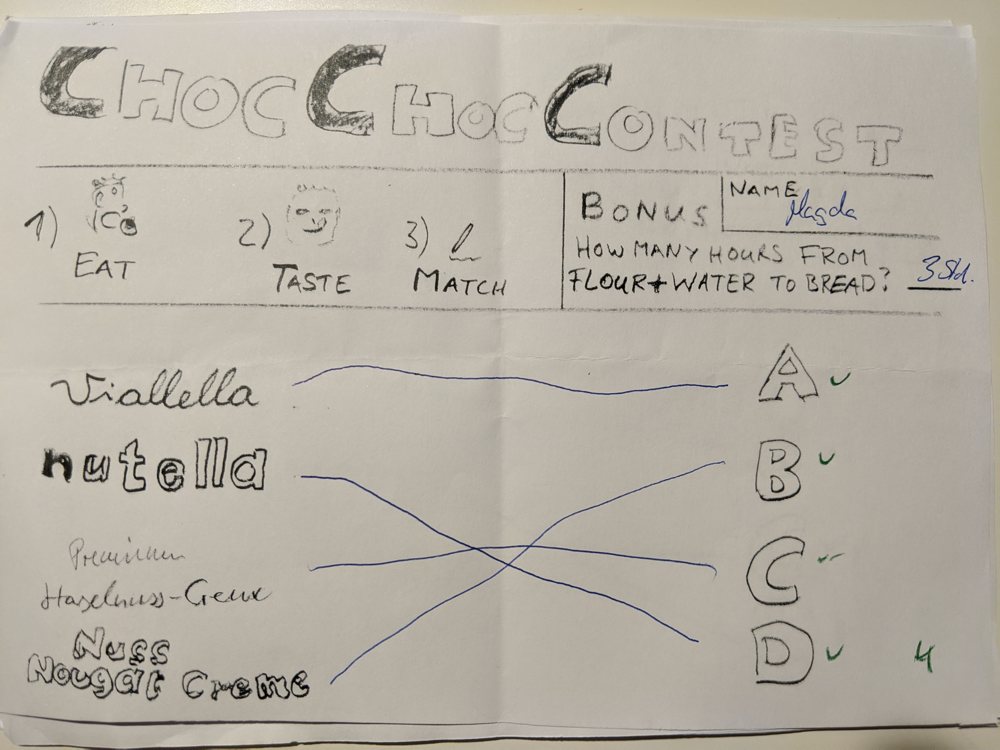 CHOC CHOC CONTEST
1) EAT
2) TASTE
3) MATCH
BONUS
NAME
Magda
HOW MANY HOURS FROM
FLOUR + WATER TO BREAD? 3 Std.
Viallella
A
nutella
B
Premium
Haselnuss-Creme
C
Nuss
Nougat Creme
D
4